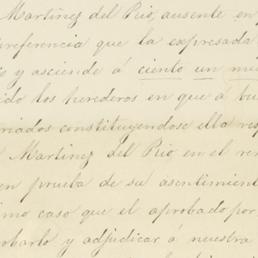 Martinez del Rio, ausente en
referencia que la expresada
y asciende á ciento un mi
ido los herederos en que á bu
riados constituyendose ella res
Martinez del Rio en el ren
en prueba de su asentimient
imo caso que el aprobado por
robarlo y adjudicar á nuestra